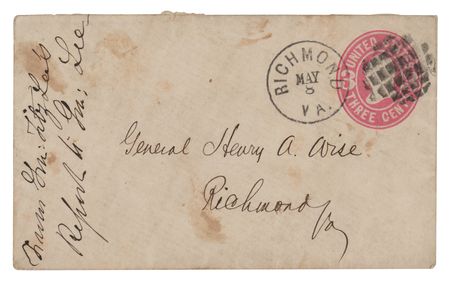 RICHMOND
MAY
8
VA.
UNITED
THREE CENT
General Henry A. Wise
Richmond
Va
Genl Fitz Lee's
Report to Gen. Lee